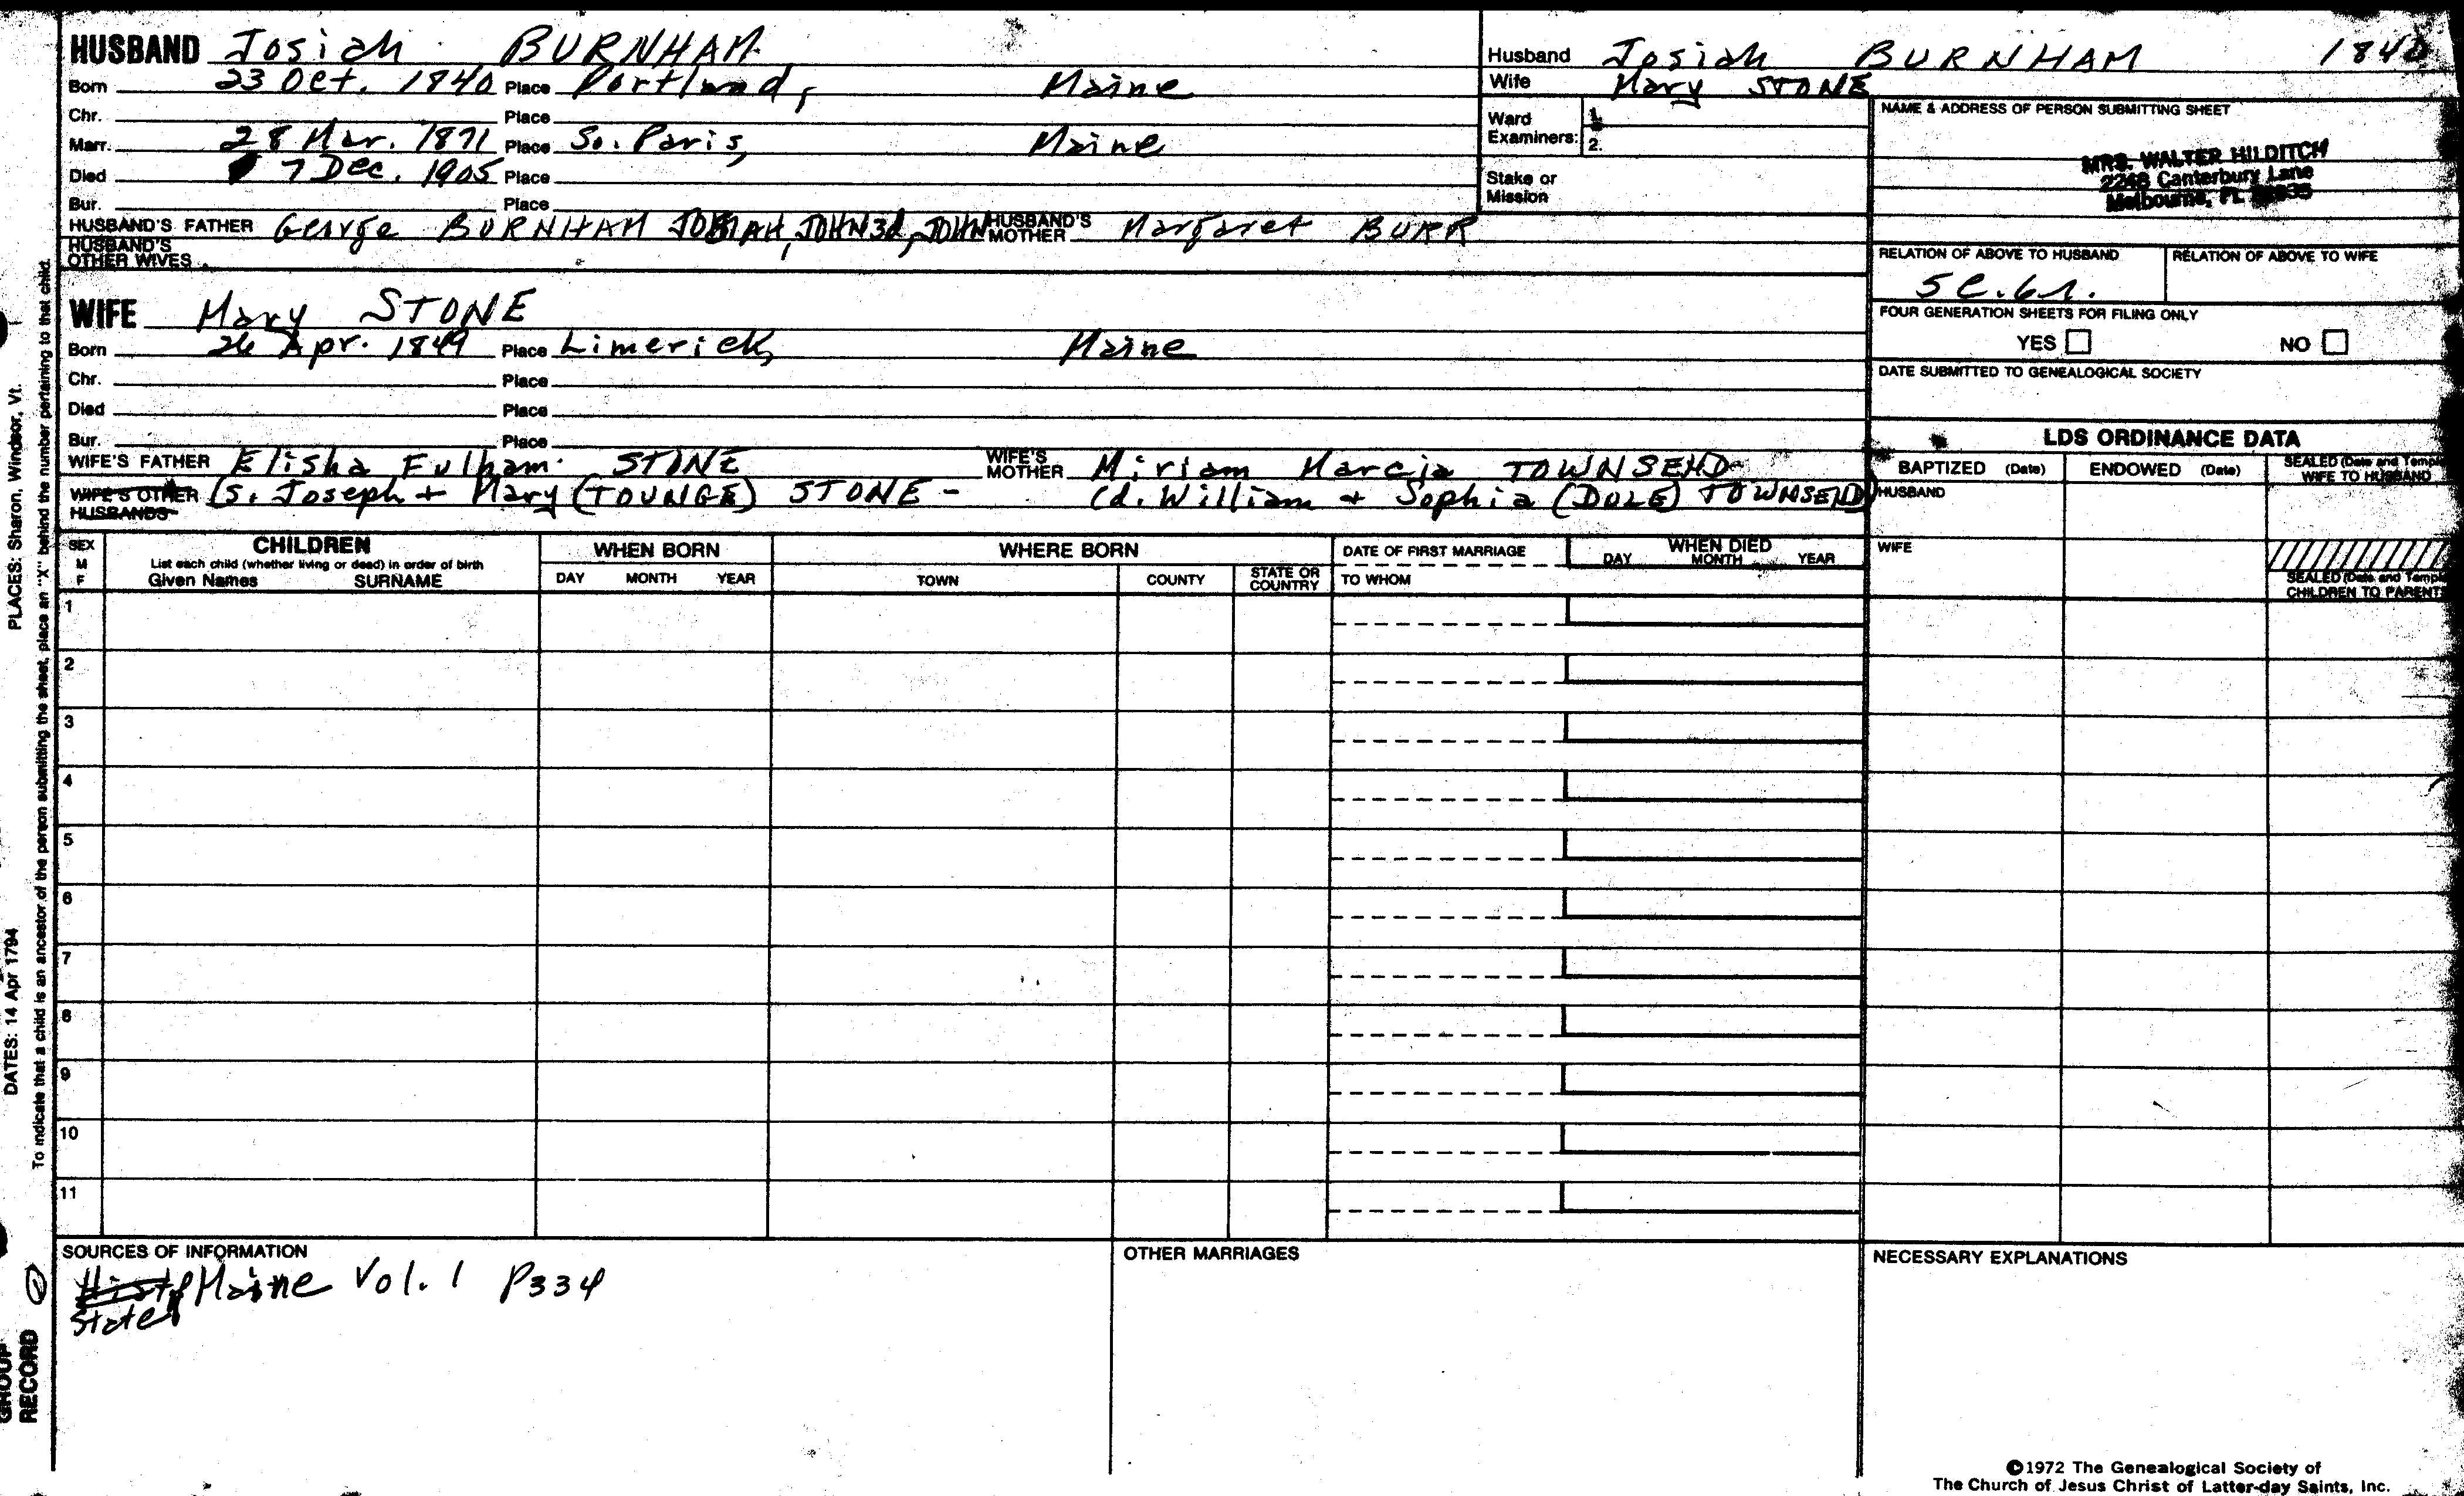 HUSBAND Josiah BURNHAM
Born 23 Oct. 1840 Place Portland, Maine
Chr. Place
Marr. 28 Mar. 1871 Place So. Paris, Maine
Died 7 Dec. 1905 Place
Bur. Place
HUSBAND'S FATHER George BURNHAM JOSIAH, JOHN 3d, JOHN HUSBAND'S MOTHER Margaret BURR
HUSBAND'S OTHER WIVES
WIFE Mary STONE
Born 26 Apr. 1849 Place Limerick, Maine
Chr. Place
Died Place
Bur. Place
WIFE'S FATHER Elisha Fulham STONE WIFE'S MOTHER Miriam Marcia TOWNSEND
WIFE'S OTHER HUSBANDS (S. Joseph + Mary (TOUNGE) STONE - (d. William + Sophia (DOLE) TOWNSEND)
Husband Josiah BURNHAM 1840
Wife Mary STONE
Ward Examiners: 1. 2.
Stake or Mission
NAME & ADDRESS OF PERSON SUBMITTING SHEET
MRS. WALTER HILDITCH
2248 Canterbury Lane
Melbourne, FL
RELATION OF ABOVE TO HUSBAND
RELATION OF ABOVE TO WIFE
5C.6r.
FOUR GENERATION SHEETS FOR FILING ONLY
YES NO
DATE SUBMITTED TO GENEALOGICAL SOCIETY
LDS ORDINANCE DATA
BAPTIZED (Date) ENDOWED (Date) SEALED (Date and Temple) WIFE TO HUSBAND
HUSBAND
WIFE
SEALED (Date and Temple) CHILDREN TO PARENTS
SEX M F
CHILDREN
List each child (whether living or dead) in order of birth
Given Names SURNAME
WHEN BORN
DAY MONTH YEAR
WHERE BORN
TOWN COUNTY STATE OR COUNTRY
DATE OF FIRST MARRIAGE
TO WHOM
WHEN DIED
DAY MONTH YEAR
1
2
3
4
5
6
7
8
9
10
11
SOURCES OF INFORMATION
Hist of Maine Vol. 1 P334
State
OTHER MARRIAGES
NECESSARY EXPLANATIONS
PLACES: Sharon, Windsor, Vt.
DATES: 14 Apr 1794
To indicate that a child is an ancestor of the person submitting the sheet, place an "X" behind the number pertaining to that child.
GROUP
RECORD
©1972 The Genealogical Society of
The Church of Jesus Christ of Latter-day Saints, Inc.